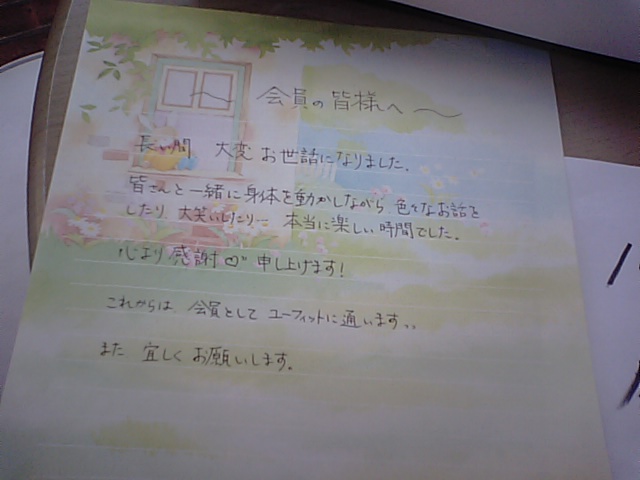 ～ 会員の皆様へ ～
長い間 大変お世話になりました.
皆さんと一緒に身体を動かしながら 色々なお話を
したり 大笑いしたりー 本当に楽しい時間でした.
心より感謝♡"申し上げます!
これからは 会員として ユーフィットに通います、、
また 宜しく お願いします.